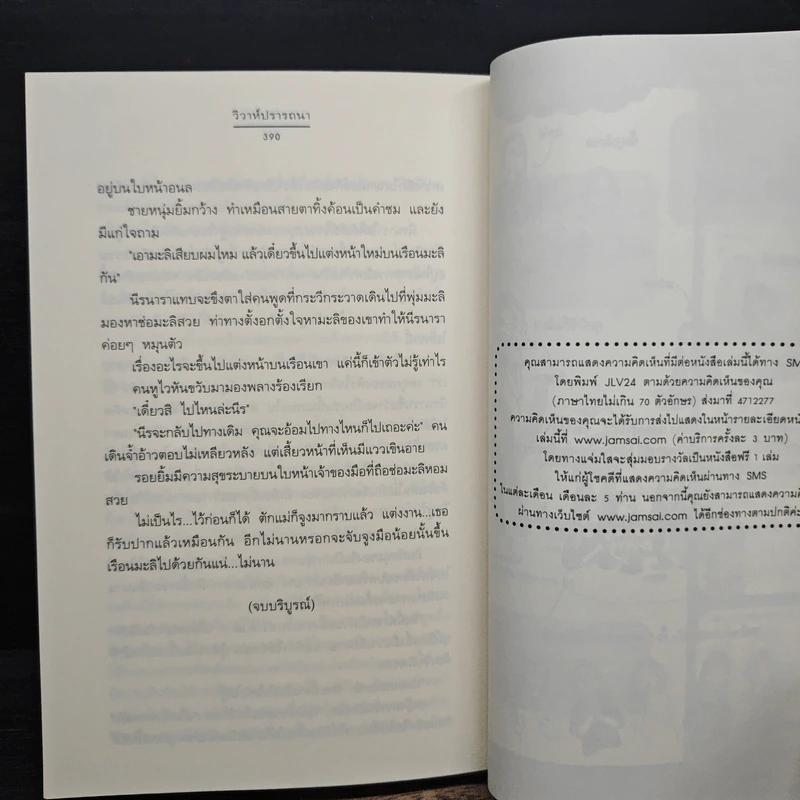 วิวาห์ปรารถนา
390
อยู่บนใบหน้าอนล
ชายหนุ่มยิ้มกว้าง ทำเหมือนสายตาทิ้งค้อนเป็นคำชม และยัง
มีแก่ใจถาม
"เอามะลิเสียบผมไหม แล้วเดี๋ยวขึ้นไปแต่งหน้าใหม่บนเรือนมะลิ
กัน"
นีรนาราแทบจะขึงตาใส่คนพูดที่กระวีกระวาดเดินไปที่พุ่มมะลิ
มองหาช่อมะลิสวย ท่าทางตั้งอกตั้งใจหามะลิของเขาทำให้นีรนารา
ค่อยๆ หมุนตัว
เรื่องอะไรจะขึ้นไปแต่งหน้าบนเรือนเขา แค่นี้ก็เข้าตัวไม่รู้เท่าไร
คนหูไวหันขวับมามองพลางร้องเรียก
"เดี๋ยวสิ ไปไหนล่ะนีร"
"นีรจะกลับไปทางเดิม คุณจะอ้อมไปทางไหนก็ไปเถอะค่ะ" คน
เดินจ้ำอ้าวตอบไม่เหลียวหลัง แต่เสี้ยวหน้าที่เห็นมีแววเขินอาย
รอยยิ้มมีความสุขระบายบนใบหน้าเจ้าของมือที่ถือช่อมะลิหอม
สวย
ไม่เป็นไร...ไว้ก่อนก็ได้ ตักแม่ก็จูงมากราบแล้ว แต่งงาน...เธอ
ก็รับปากแล้วเหมือนกัน อีกไม่นานหรอกจะจับจูงมือน้อยนั้นขึ้น
เรือนมะลิไปด้วยกันแน่...ไม่นาน
(จบบริบูรณ์)
คุณสามารถแสดงความคิดเห็นที่มีต่อหนังสือเล่มนี้ได้ทาง SM
โดยพิมพ์ JLV24 ตามด้วยความคิดเห็นของคุณ
(ภาษาไทยไม่เกิน 70 ตัวอักษร) ส่งมาที่ 4712277
ความคิดเห็นของคุณจะได้รับการส่งไปแสดงในหน้ารายละเอียดหนั
เล่มนี้ที่ www.jamsai.com (ค่าบริการครั้งละ 3 บาท)
โดยทางแจ่มใสจะสุ่มมอบรางวัลเป็นหนังสือฟรี 1 เล่ม
ให้แก่ผู้โชคดีที่แสดงความคิดเห็นผ่านทาง SMS
ในแต่ละเดือน เดือนละ 5 ท่าน นอกจากนี้คุณยังสามารถแสดงความคิ
ผ่านทางเว็บไซต์ www.jamsai.com ได้อีกช่องทางตามปกติค่ะ